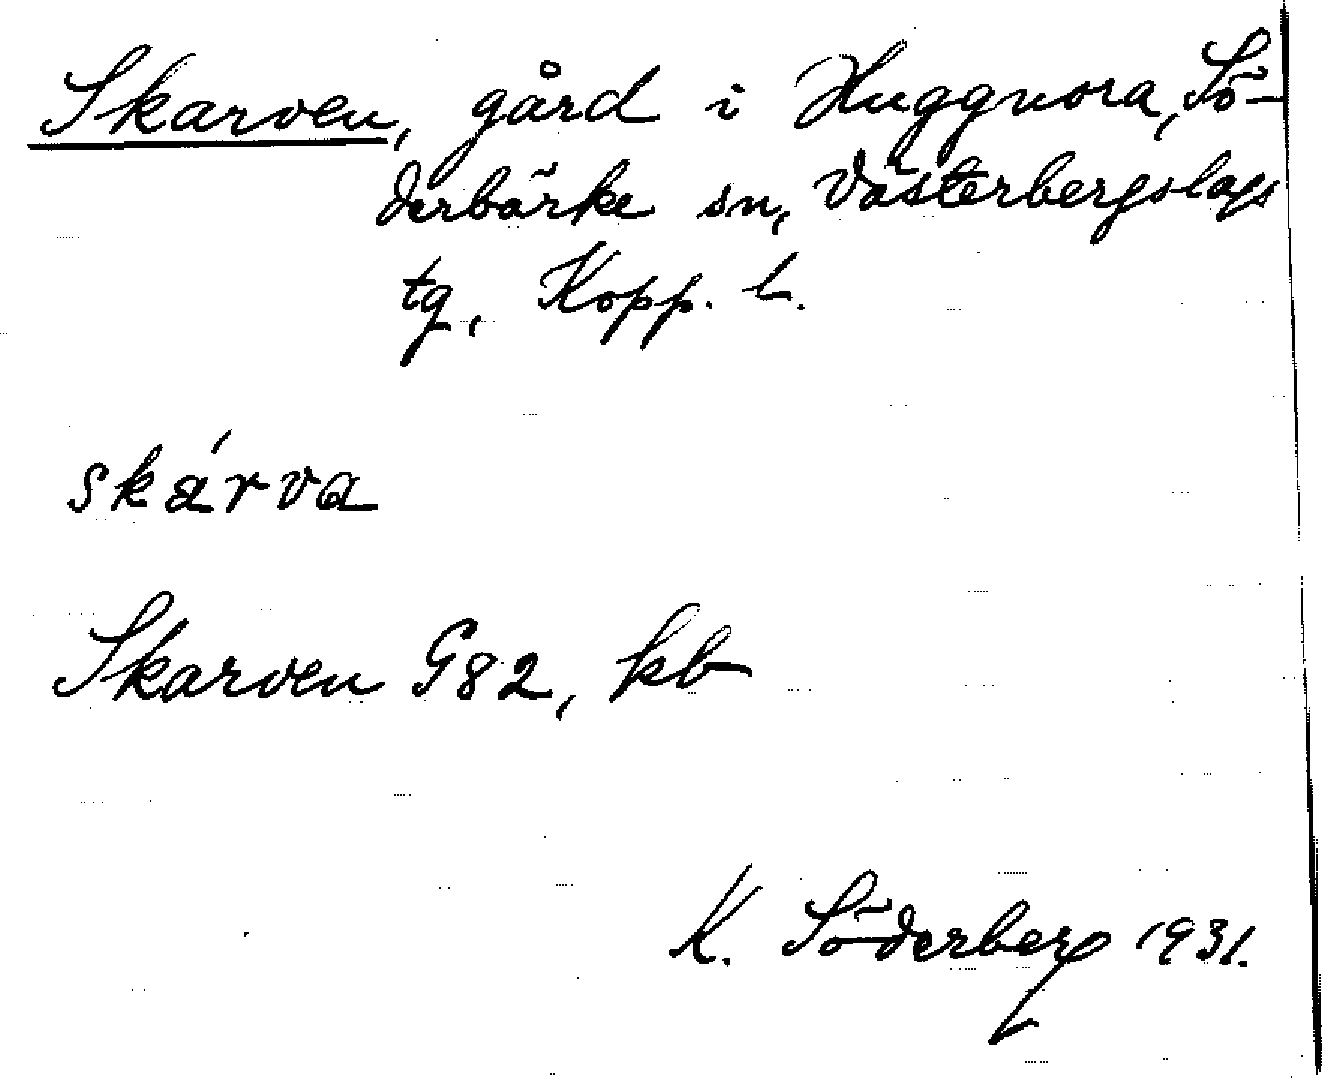 Skarven, gård i Huggnora, Sö-
derbärke sn, Västerbergslags
tg, Kopp. l.
skárva
Skarven G82, kb
K. Söderberg 1931.